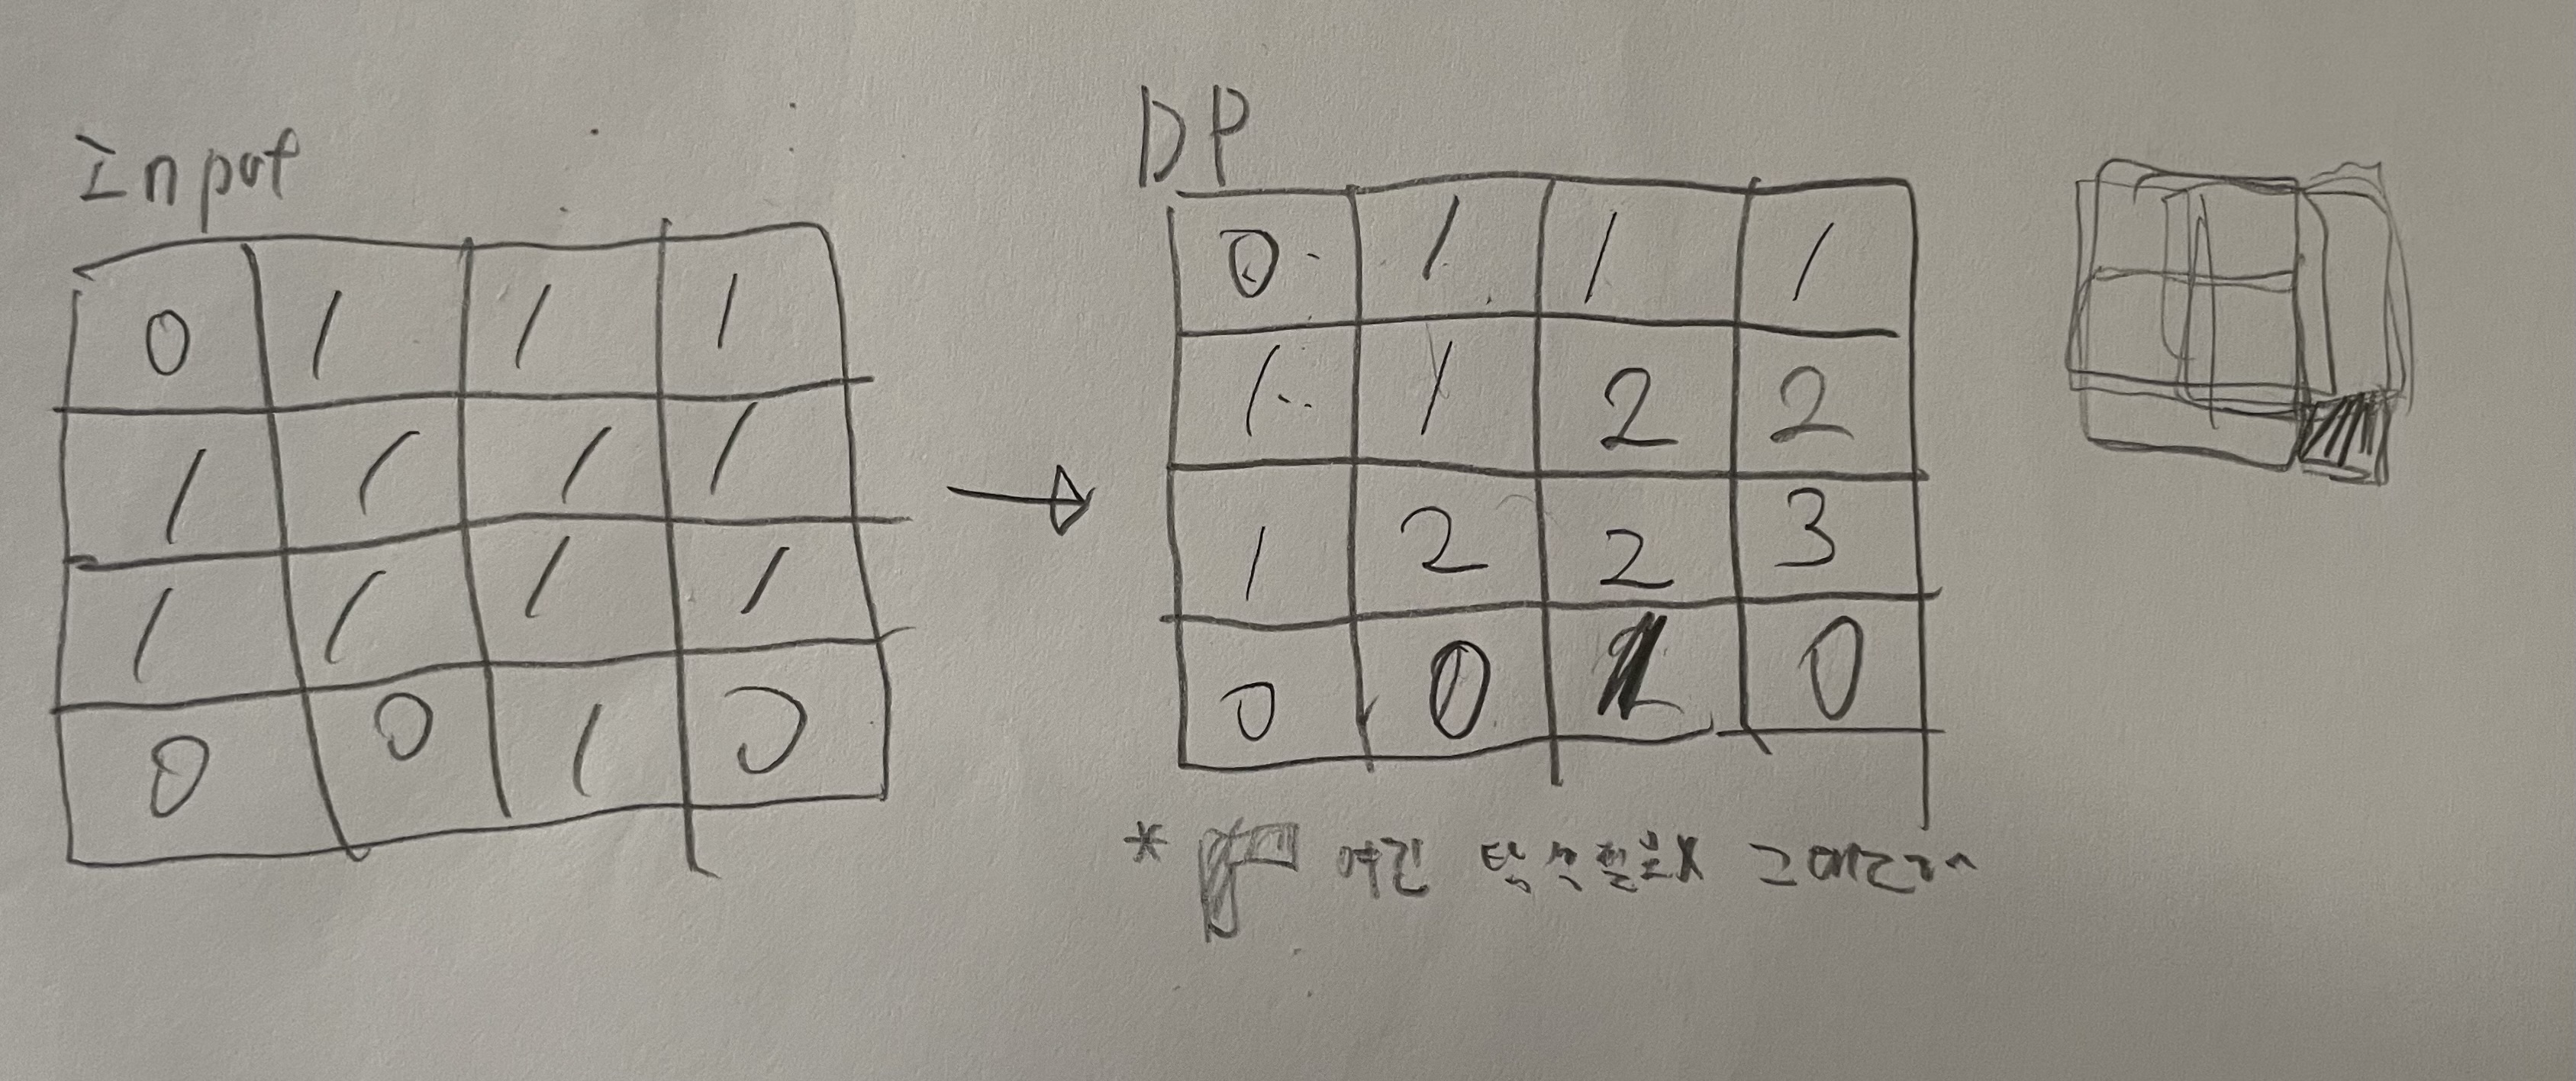 Input
0 1 1 1
1 1 1 1
1 1 1 1
0 0 1 0
DP
0 1 1 1
1 1 2 2
1 2 2 3
0 0 1 0
* 여긴 탐색필요X 그대로